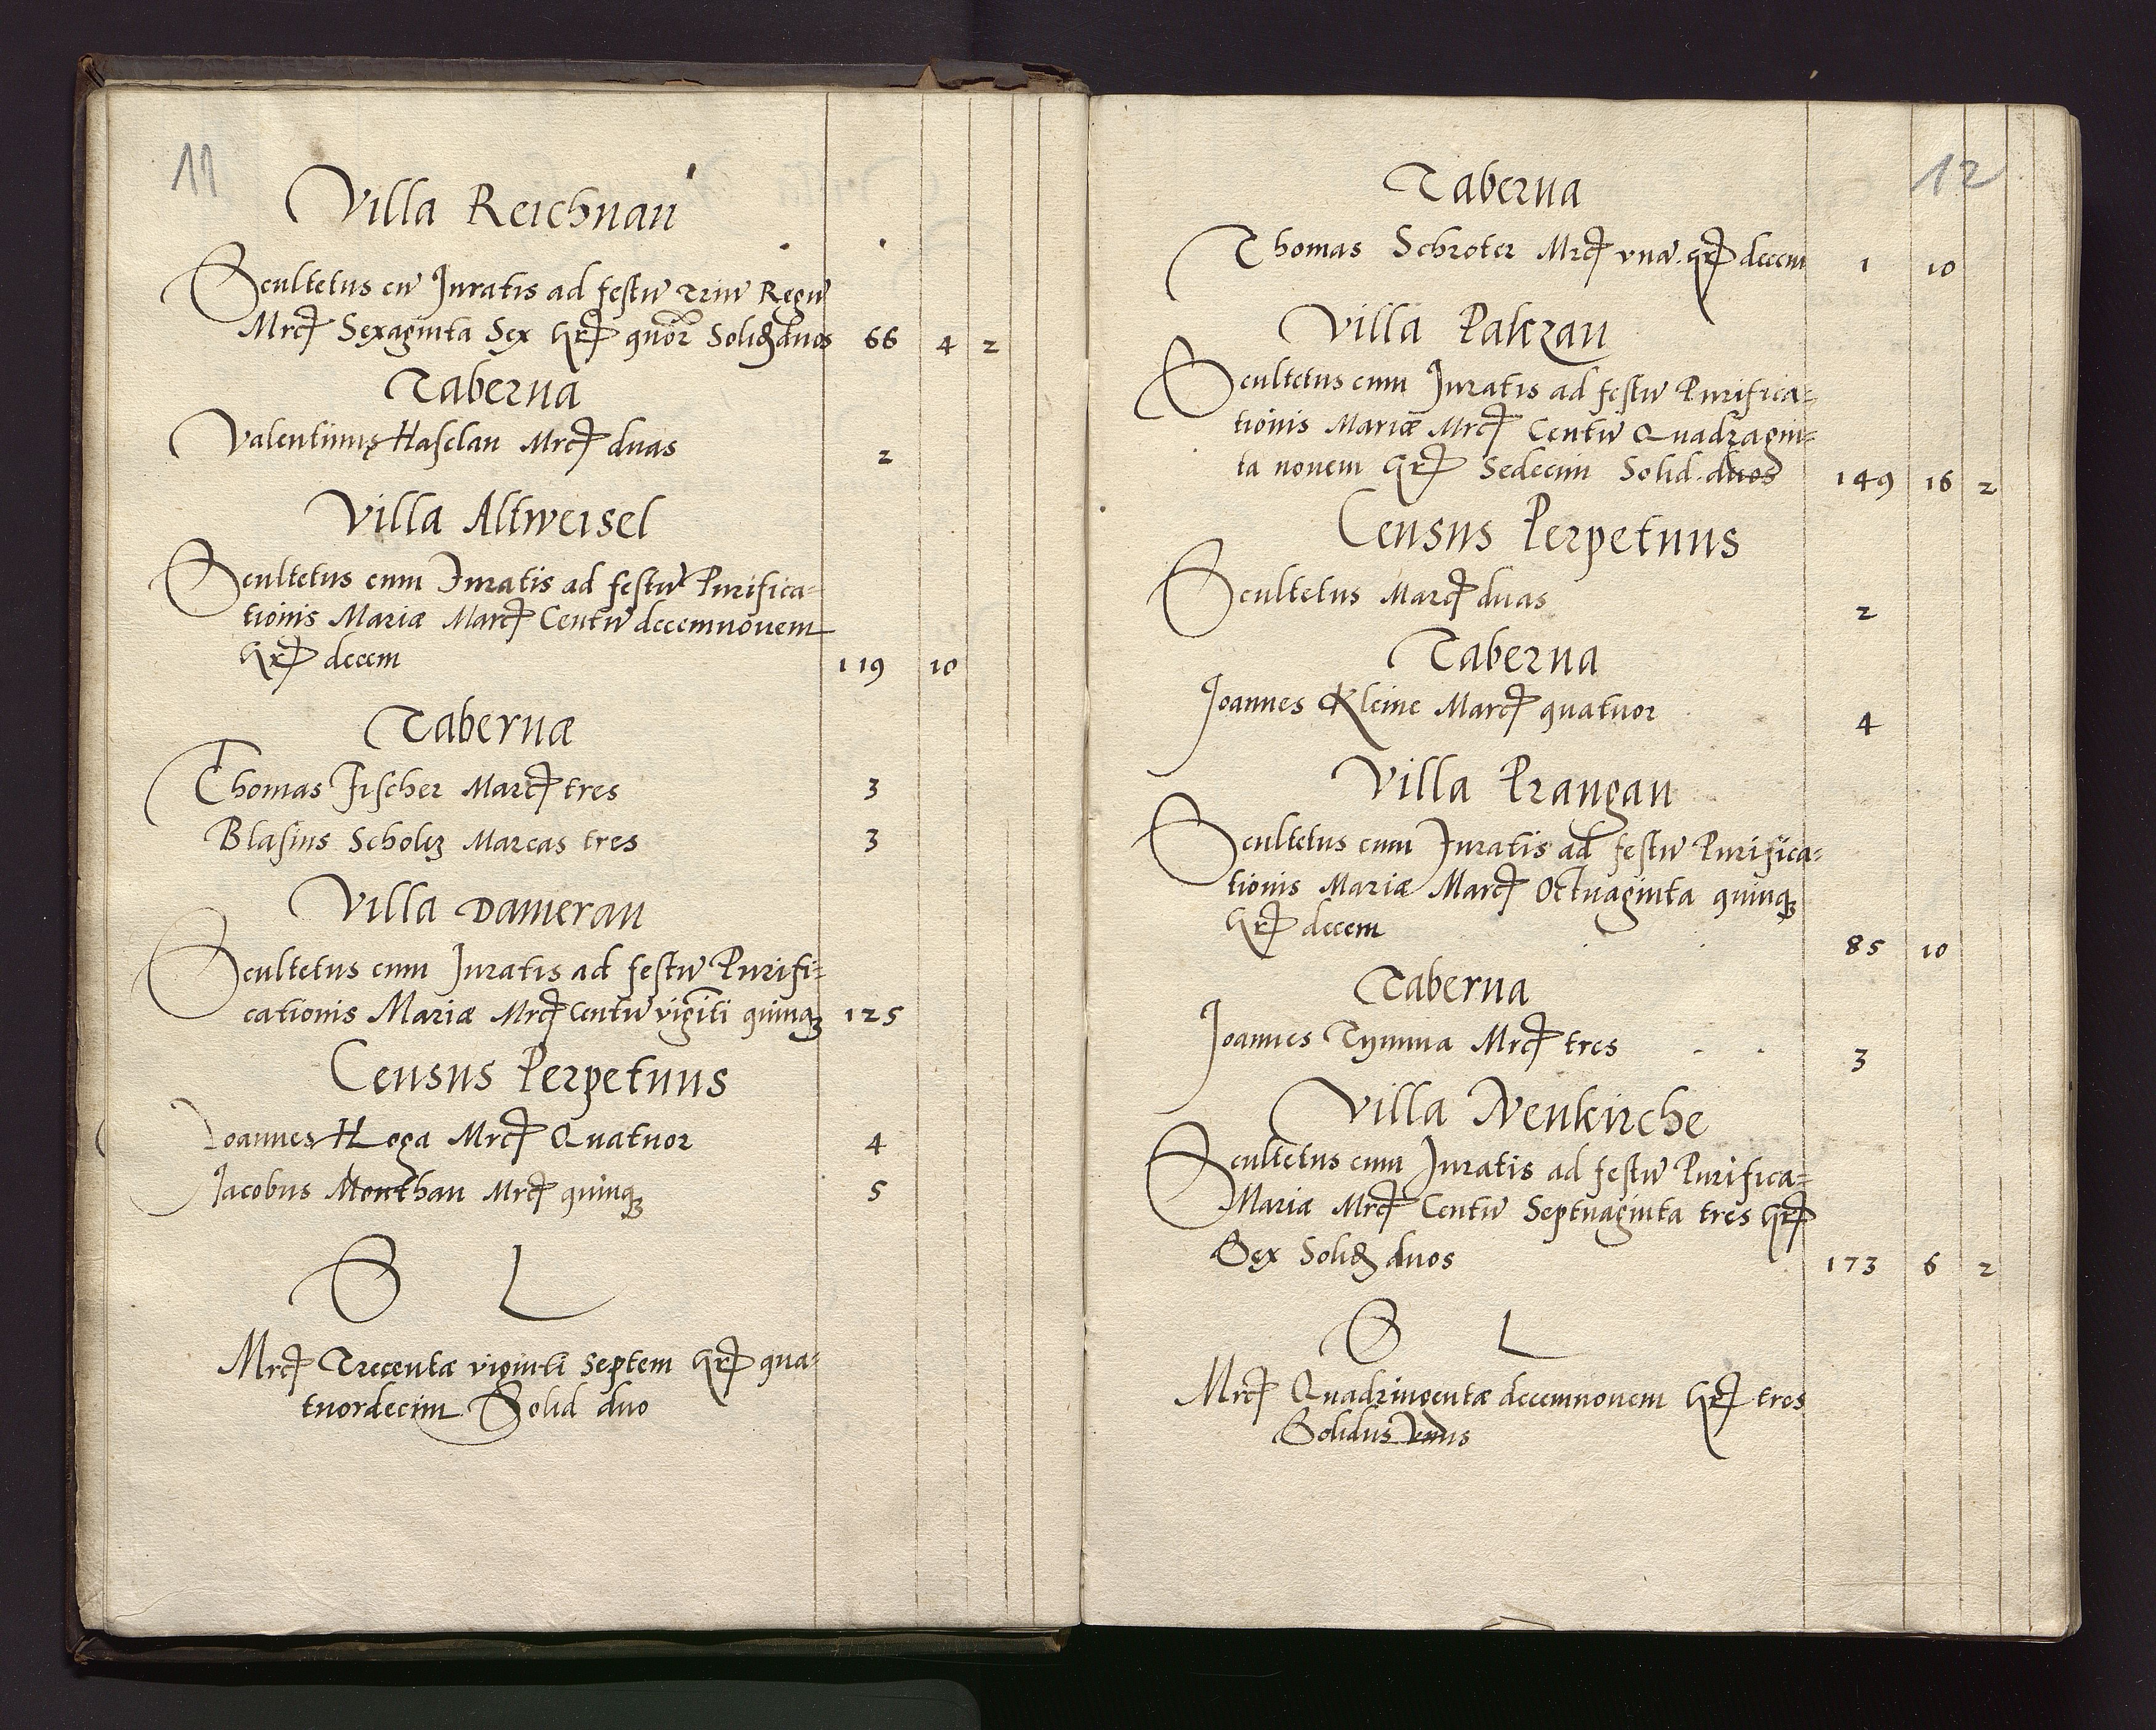 11
Villa Reichnau
Scultetus cū Iuratis ad festū Triū Regū
Mrc Sexaginta Sex gr quōr Solid duos 66 4 2
Taberna
Valentinus Haselau Mrc duas 2
Villa Altweisel
Scultetus cum Iuratis ad festū Purifica=
tionis Mariæ Marc Centū decemnovem
gr decem 119 10
Tabernæ
Thomas Fischer Marc tres 3
Blasius Scholcz Marcas tres 3
Villa Damerau
Scultetus cum Iuratis ad festū Purifi=
cationis Mariæ Mrc Centū vigīti quinq 125
Census Perpetuus
Ioannes Hoga Mrc Quatuor 4
Iacobus Monthau Mrc quinq 5
S L
Mrc Trecentæ viginti septem gr qua=
tuordecim Solid duo
12
Taberna
Thomas Schroter Mrc vnā gr decem 1 10
Villa Palczau
Scultetus cum Iuratis ad festū Purifica=
tionis Mariæ Mrc Centū Quadragin=
ta novem gr Sedecim Solid. duos 149 16 2
Census Perpetuus
Scultetus Marc duas 2
Taberna
Joannes Kleine Marc quatuor 4
Villa Prangau
Scultetus cum Iuratis ad festū Purifica=
tionis Mariæ Marc Octuaginta quinq
gr decem 85 10
Taberna
Joannes Tymma Mrc tres 3
Villa Neukirche
Scultetus cum Iuratis ad festū Purifica=
Mariæ Mrc Centū Septuaginta tres gr
Sex Solid duos 173 6 2
S L
Mrc Quadringentæ decemnovem gr tres
Solidus vnus